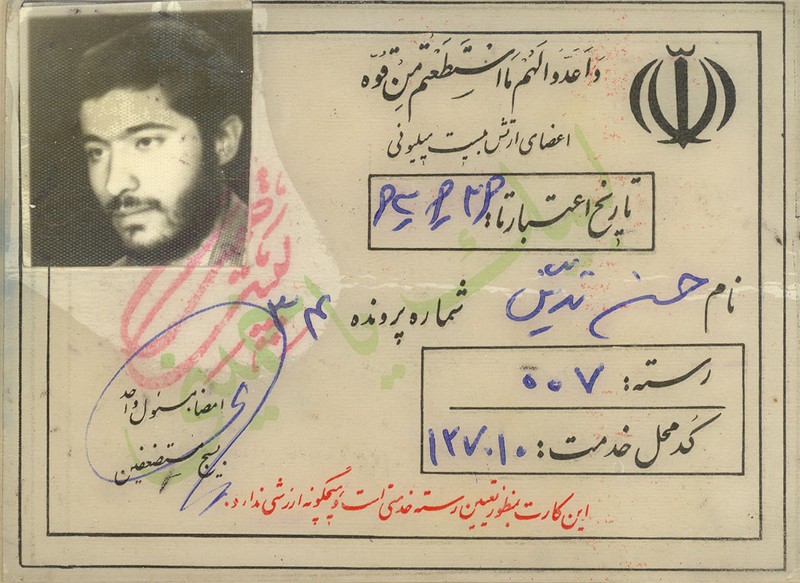 وَاَعَدّوالَهُم مَااسْتَطَعْتُم مِن قُوّه
اعضای ارتش بیست میلیونی
تاریخ اعتبار تا:
نام حسن
شماره پرونده ۳۴
رسته: ۰۰۷
کُد محل خدمت: ۱۲۷۰۱۰
امضاء مسئول واحد
بسیج مستضعفین
این کارت بمنظور تعیین رسته خدمتی است و هیچگونه ارزشی ندارد.
لبیک یا خمینی